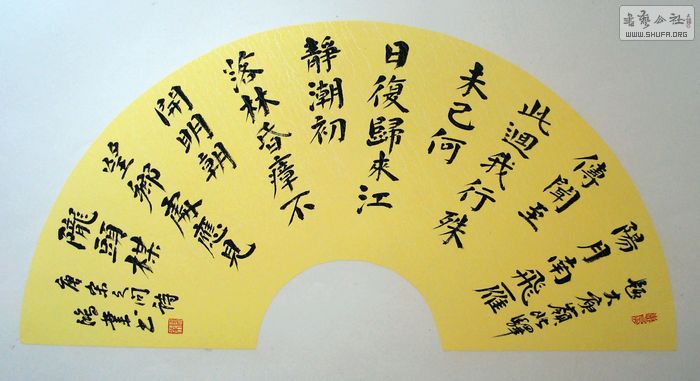 題大庾嶺北驛
陽月南飛雁
傳聞至
此迴我行殊
未已何
日復歸來江
靜潮初
落林昏瘴不
開明朝
望鄉處應見
隴頭楳
唐宋之問詩
書藝公社
WWW.SHUFA.ORG